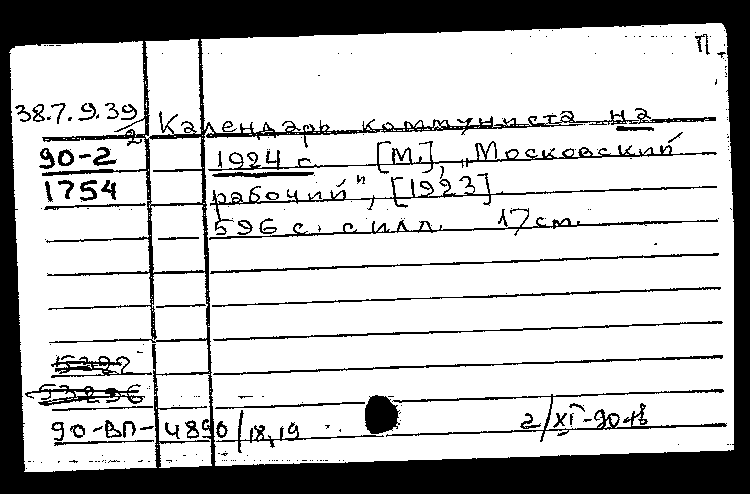 П
38.7.9.39/2 Календарь коммуниста на
90-2 1924 г. [М.], „Московский
1754 рабочий", [1923].
596 с. с илл. 17 см.
90-ВП-4890/18,19 2/XI-90